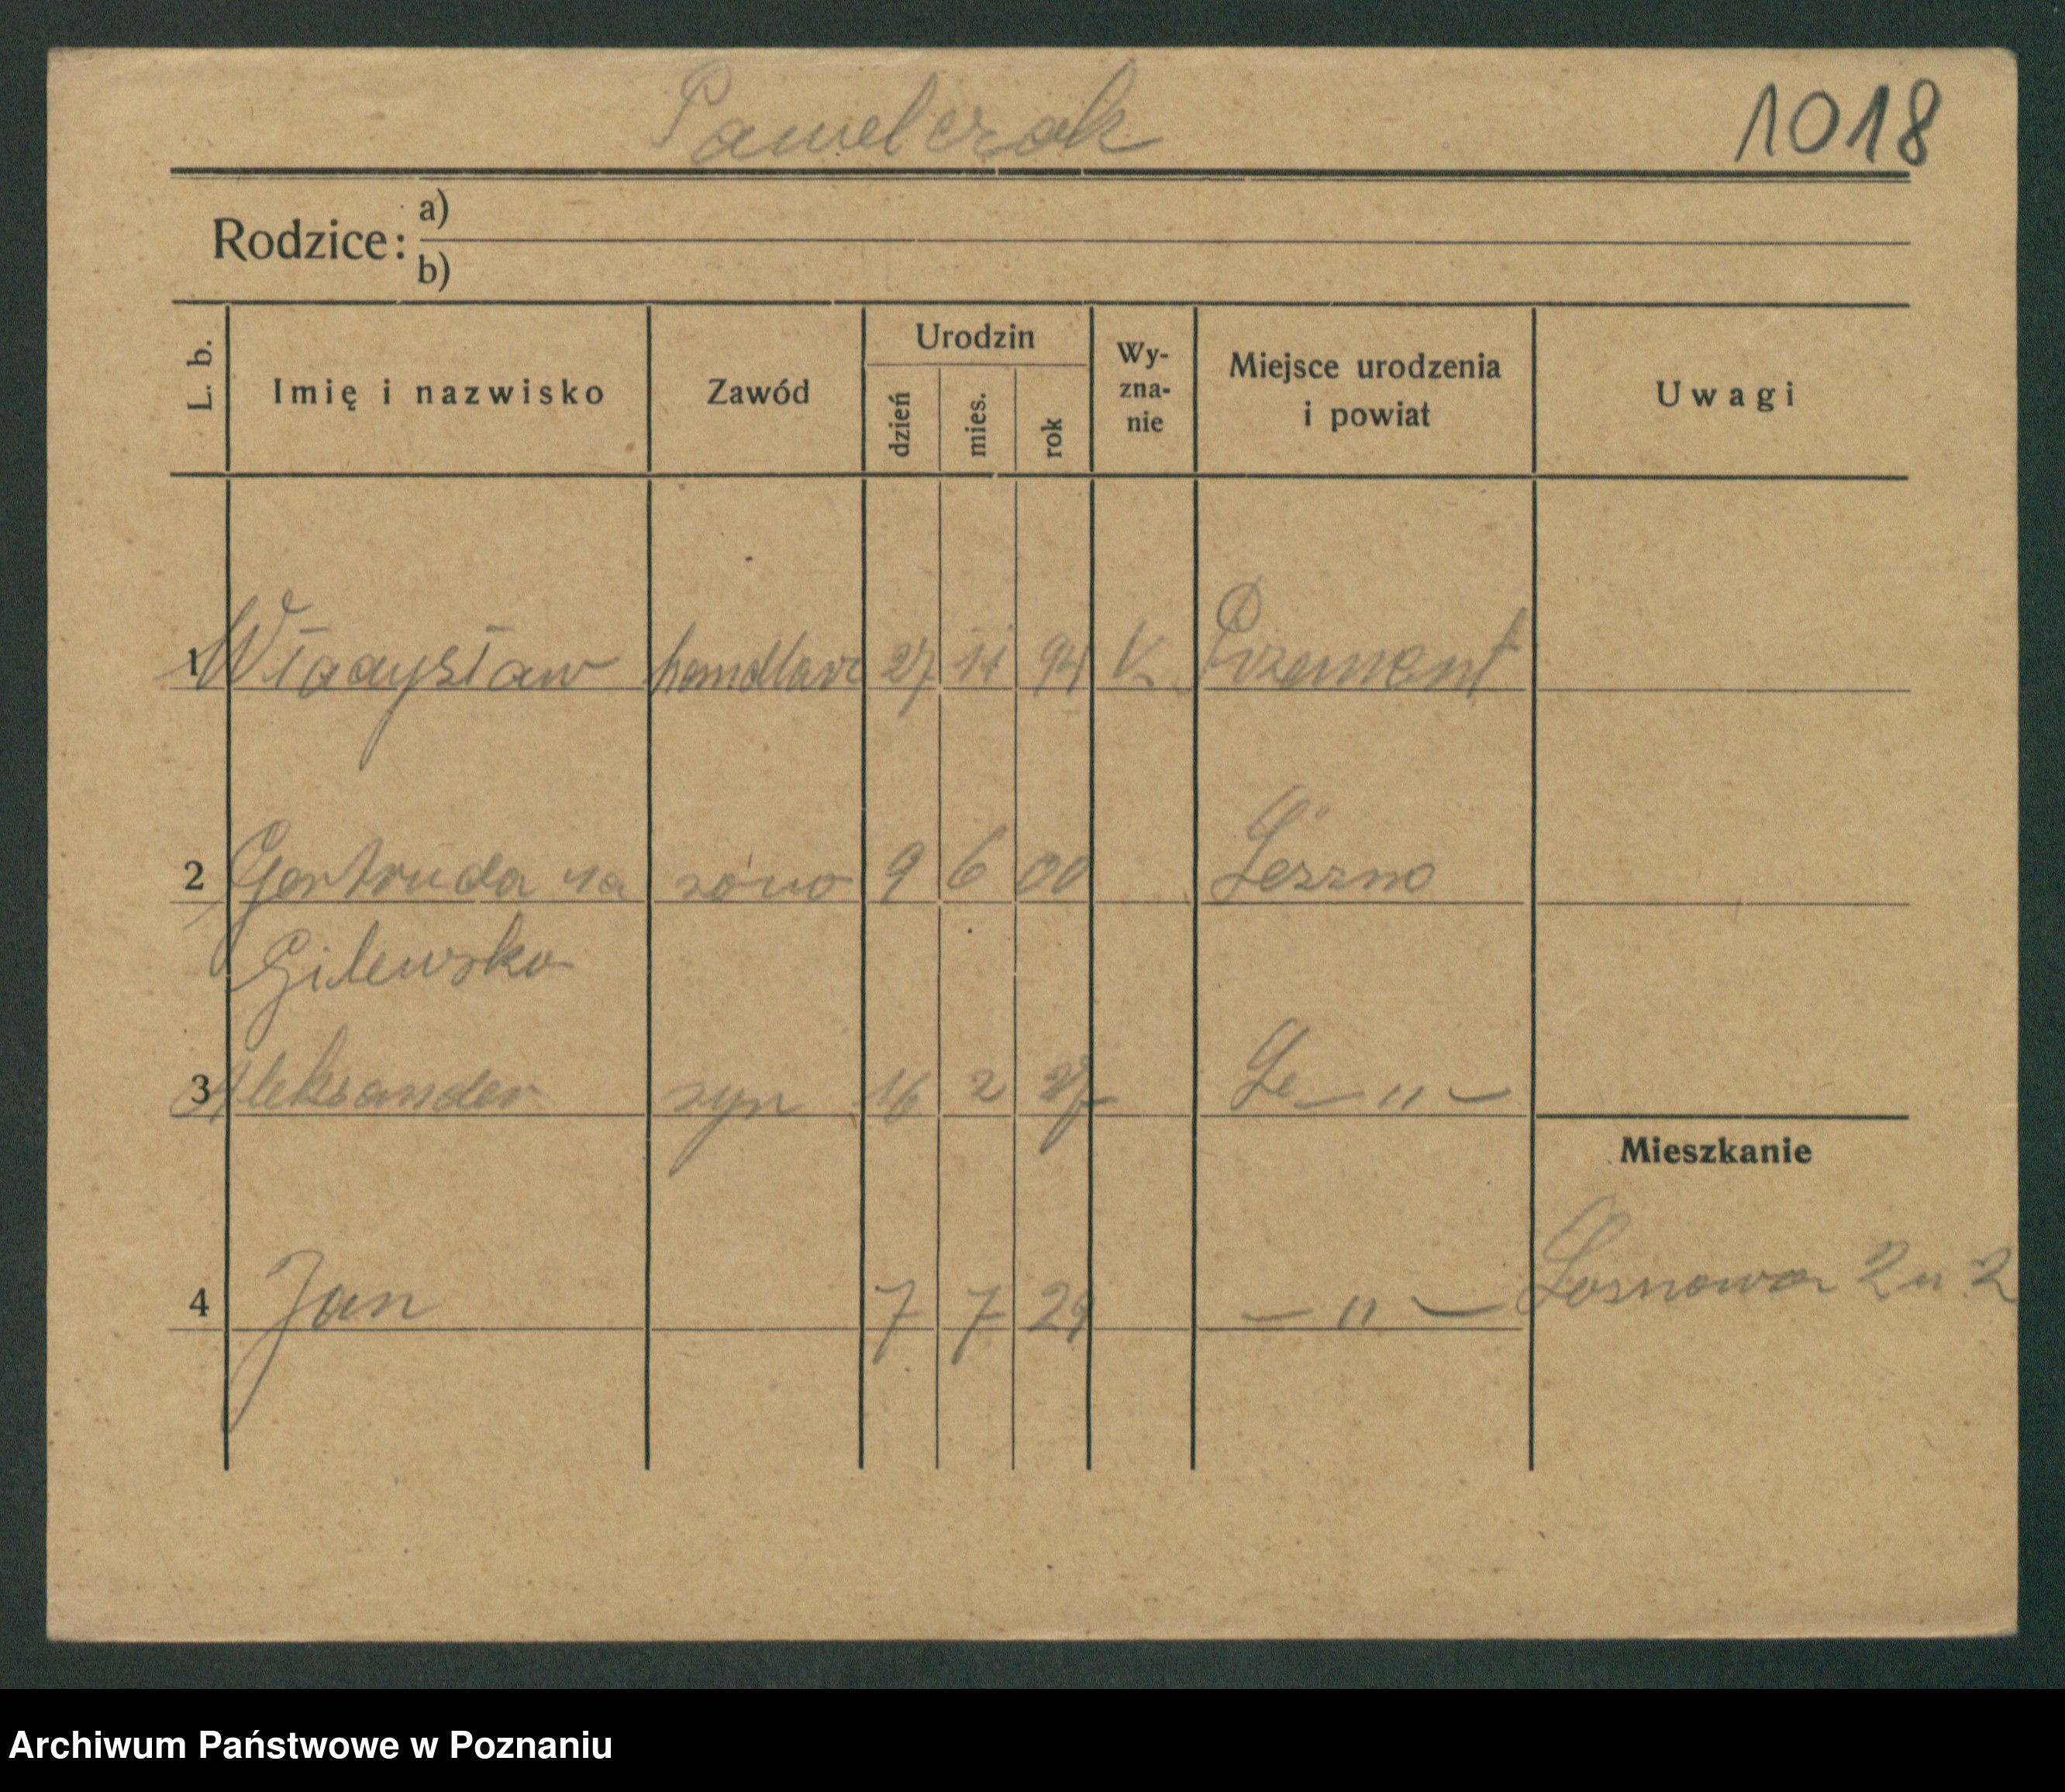 Pawelczak 1018
Rodzice: a)
b)
L. b. Imię i nazwisko Zawód Urodzin dzień mies. rok Wy-zna-nie Miejsce urodzenia i powiat Uwagi
1 Władysław handlarz 27 94 K Przement
2 Gertruda 9 6 00 Leszno
Gilewska
3 Aleksander syn 16 2 27 Le — " —
Mieszkanie
4 Jan 7 7 29 — " — Sosnowa 2 2
Archiwum Państwowe w Poznaniu